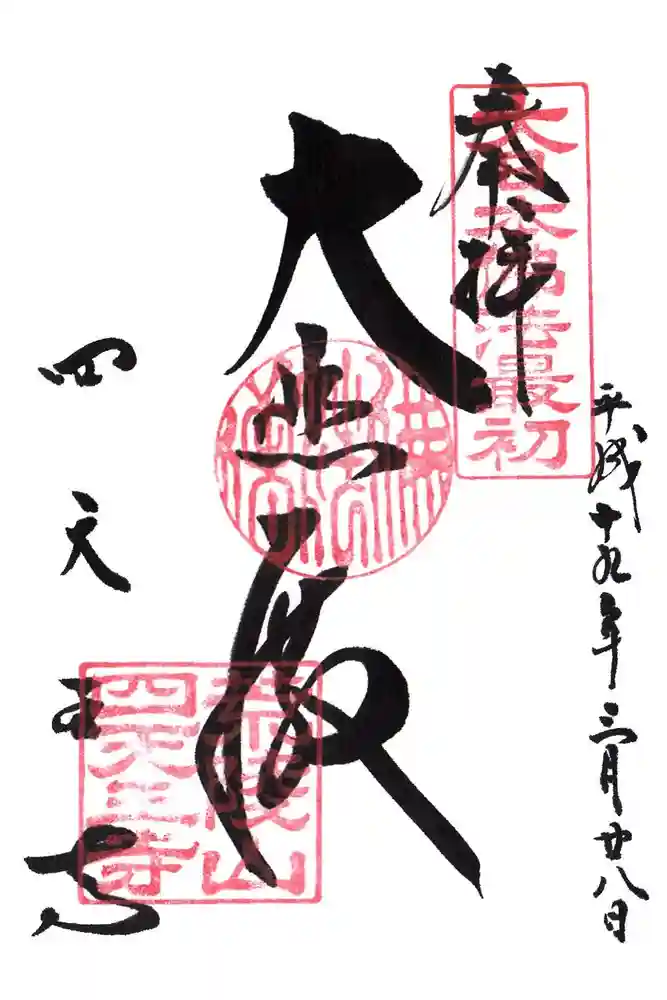 平成十九年三月廿八日
奉拝
大日本佛法最初
大悲殿
四天王寺
荒陵山
四天王寺